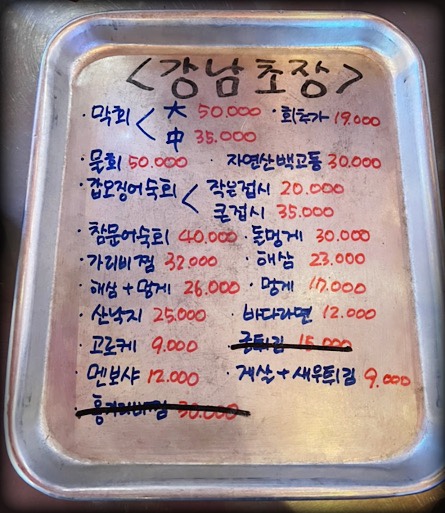 <강남초장>
· 막회 < 大 50.000 · 회추가 19.000
中 35.000
· 물회 50.000 · 자연산백고동 30.000
· 갑오징어숙회 < 작은접시 20.000
큰접시 35.000
· 참문어숙회 40.000 · 돌멍게 30.000
· 가리비찜 32.000 · 해삼 23.000
· 해삼+멍게 26.000 · 멍게 17.000
· 산낙지 25.000 · 바다라면 12.000
· 고로케 9.000 · 굴튀김 15.000
· 멘보샤 12.000 · 게살+새우튀김 9.000
· 홍가리비찜 30.000